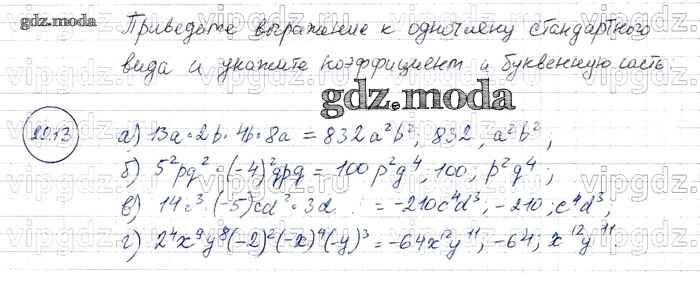 gdz.moda
Приведите выражение к одночлену стандартного
вида и укажите коэффициент и буквенную часть
gdz.moda
22.13
а) 13a·2b·4b·8a = 832a²b², 832, a²b²,
б) 5²pq²·(-4)²qpq = 100p²q⁴, 100, p²q⁴;
в) 14c³·(-5)cd²·3d = -210c⁴d³, -210; c⁴d³,
г) 2⁴x⁹y⁸(-2)²(-x)⁴(-y)³ = -64x¹²y¹¹, -64; x¹²y¹¹